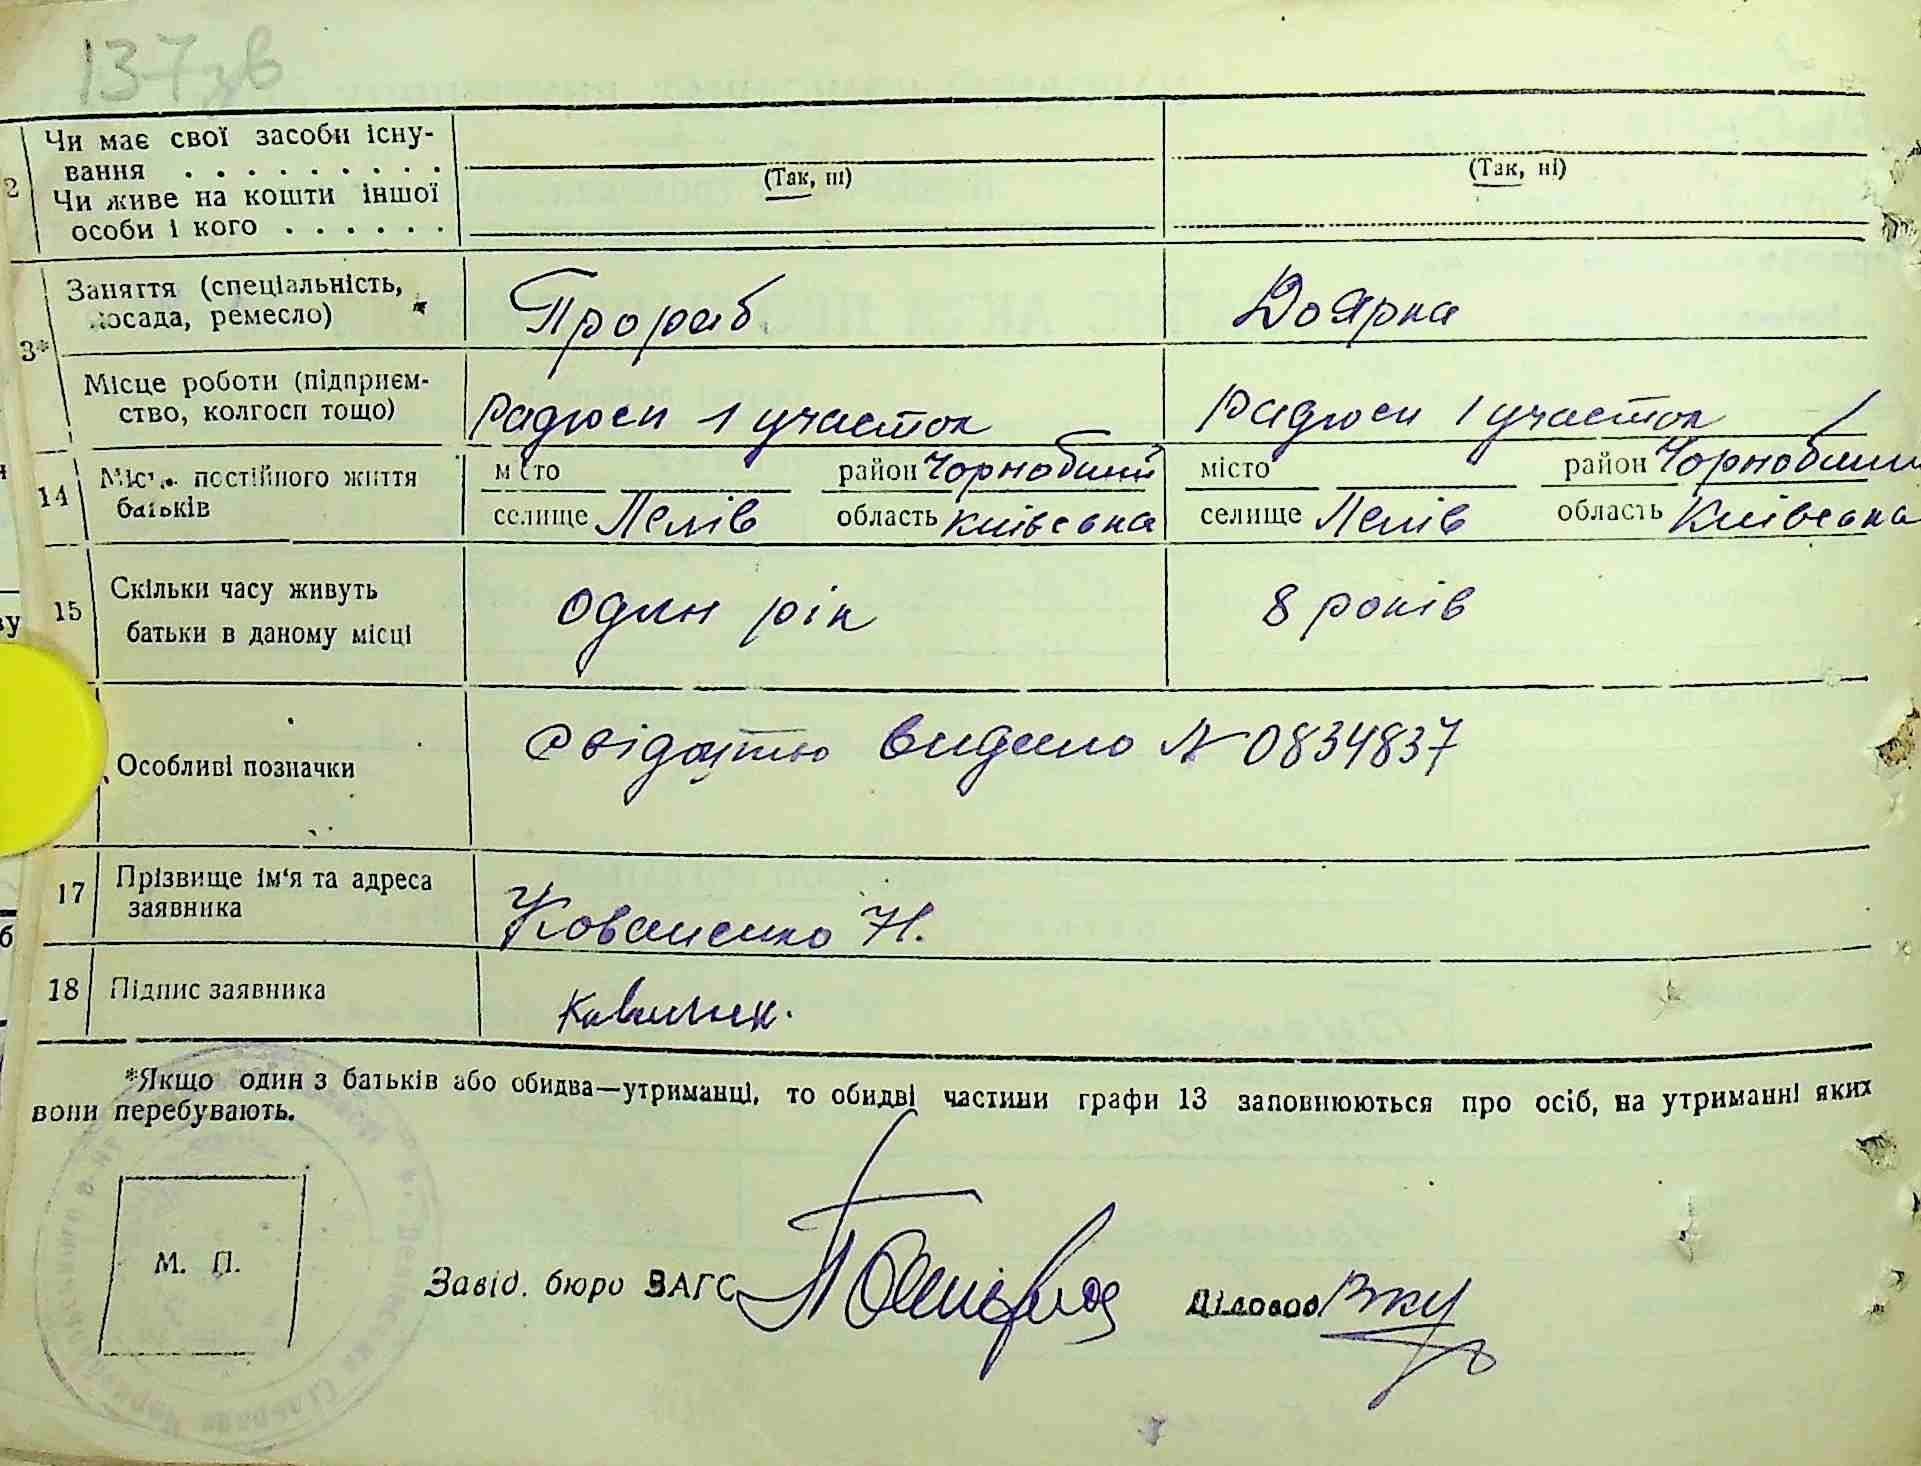 137зв
2 Чи має свої засоби існу-
вання . . . . . . . . .
(Так, ні) (Так, ні)
Чи живе на кошти іншої
особи і кого . . . . . .
3* Заняття (спеціальність,
посада, ремесло) Прораб Доярка
Місце роботи (підприєм-
ство, колгосп тощо) Радгосп 1 участок Радгосп 1 участок
14 Місце постійного життя
батьків
місто район Чорнобиль місто район Чорнобиль
селище Лелів область Київська селище Лелів область Київська
15 Скільки часу живуть
батьки в даному місці один рік 8 років
Особливі позначки свідоцтво видано N 0834837
17 Прізвище ім'я та адреса
заявника Коваленко Н.
18 Підпис заявника
*Якщо один з батьків або обидва—утриманці, то обидві частини графи 13 заповнюються про осіб, на утриманні яких
вони перебувають.
М. П.
Завід. бюро ЗАГС Діловод